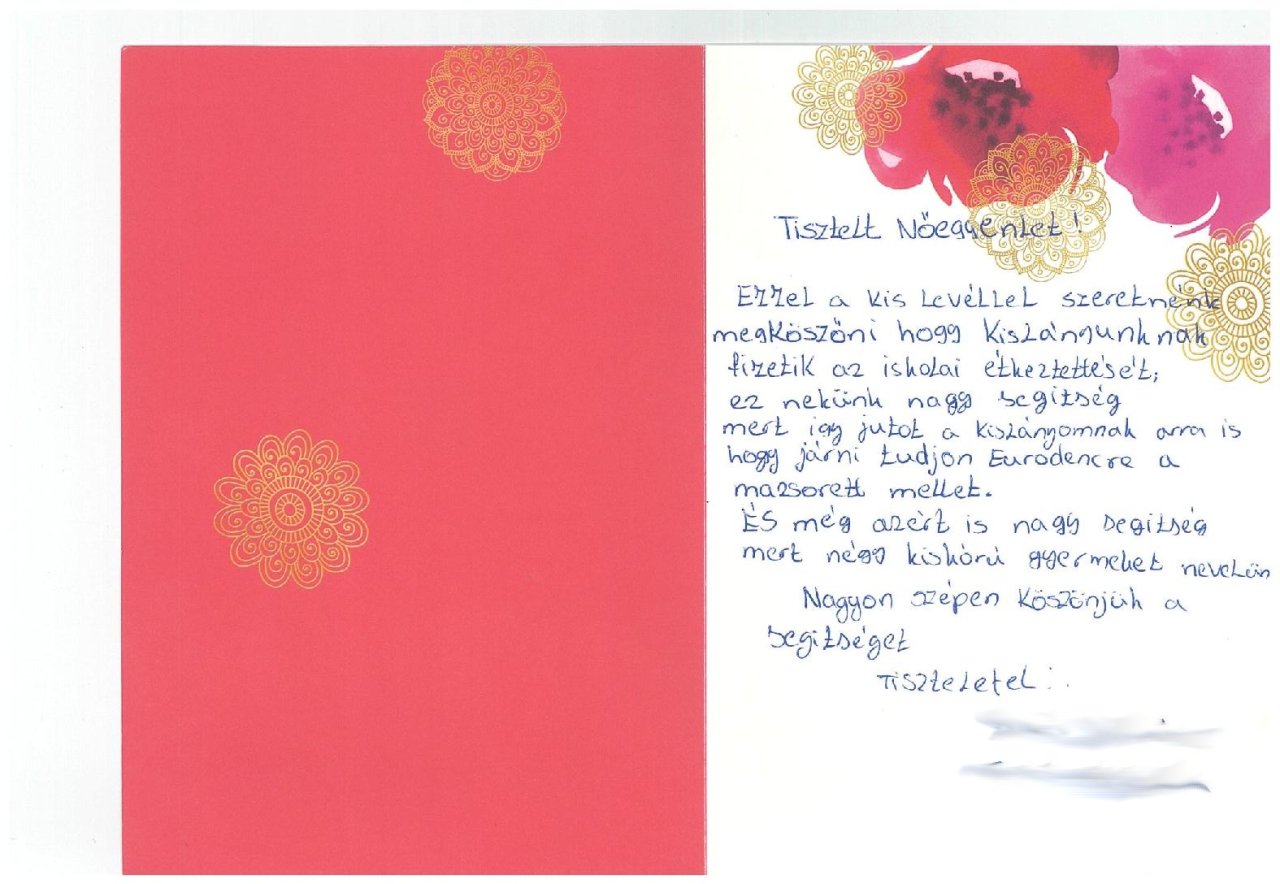 Tisztelt Nőeggyenlet!
Ezzel a kis levéllel szeretnénk
megköszöni hogy Kislányunknak
fizetik az iskolai étkeztettését,
ez nekünk nagy segitség
mert igy jutot a kislányomnak arra is
hogy járni tudjon Eurodencre a
mazsorett mellet.
ÉS még azért is nagy segitség
mert négy kiskórú gyermeket nevelün
Nagyon szépen Köszönjük a
segitséget
Tisztelelel:.